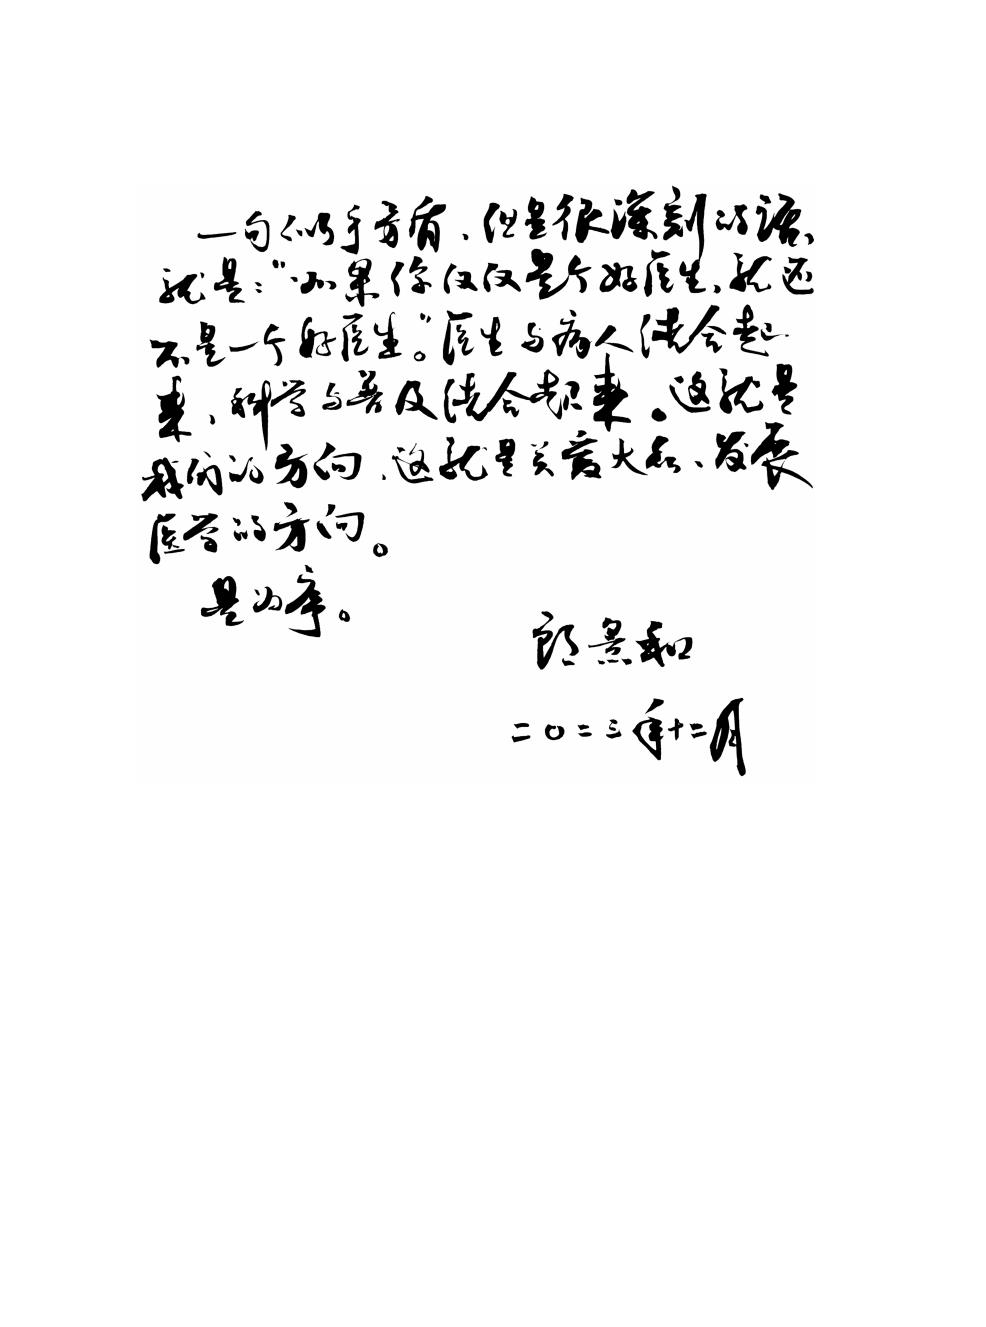 一句似乎矛盾，但是很深刻的话，
就是：“如果你仅仅是个好医生，就还
不是一个好医生。”医生与病人结合起
来，科学与普及结合起来。这就是
我们的方向，这就是关爱大众、发展
医学的方向。
是为序。
郎景和
二〇二三年十二月